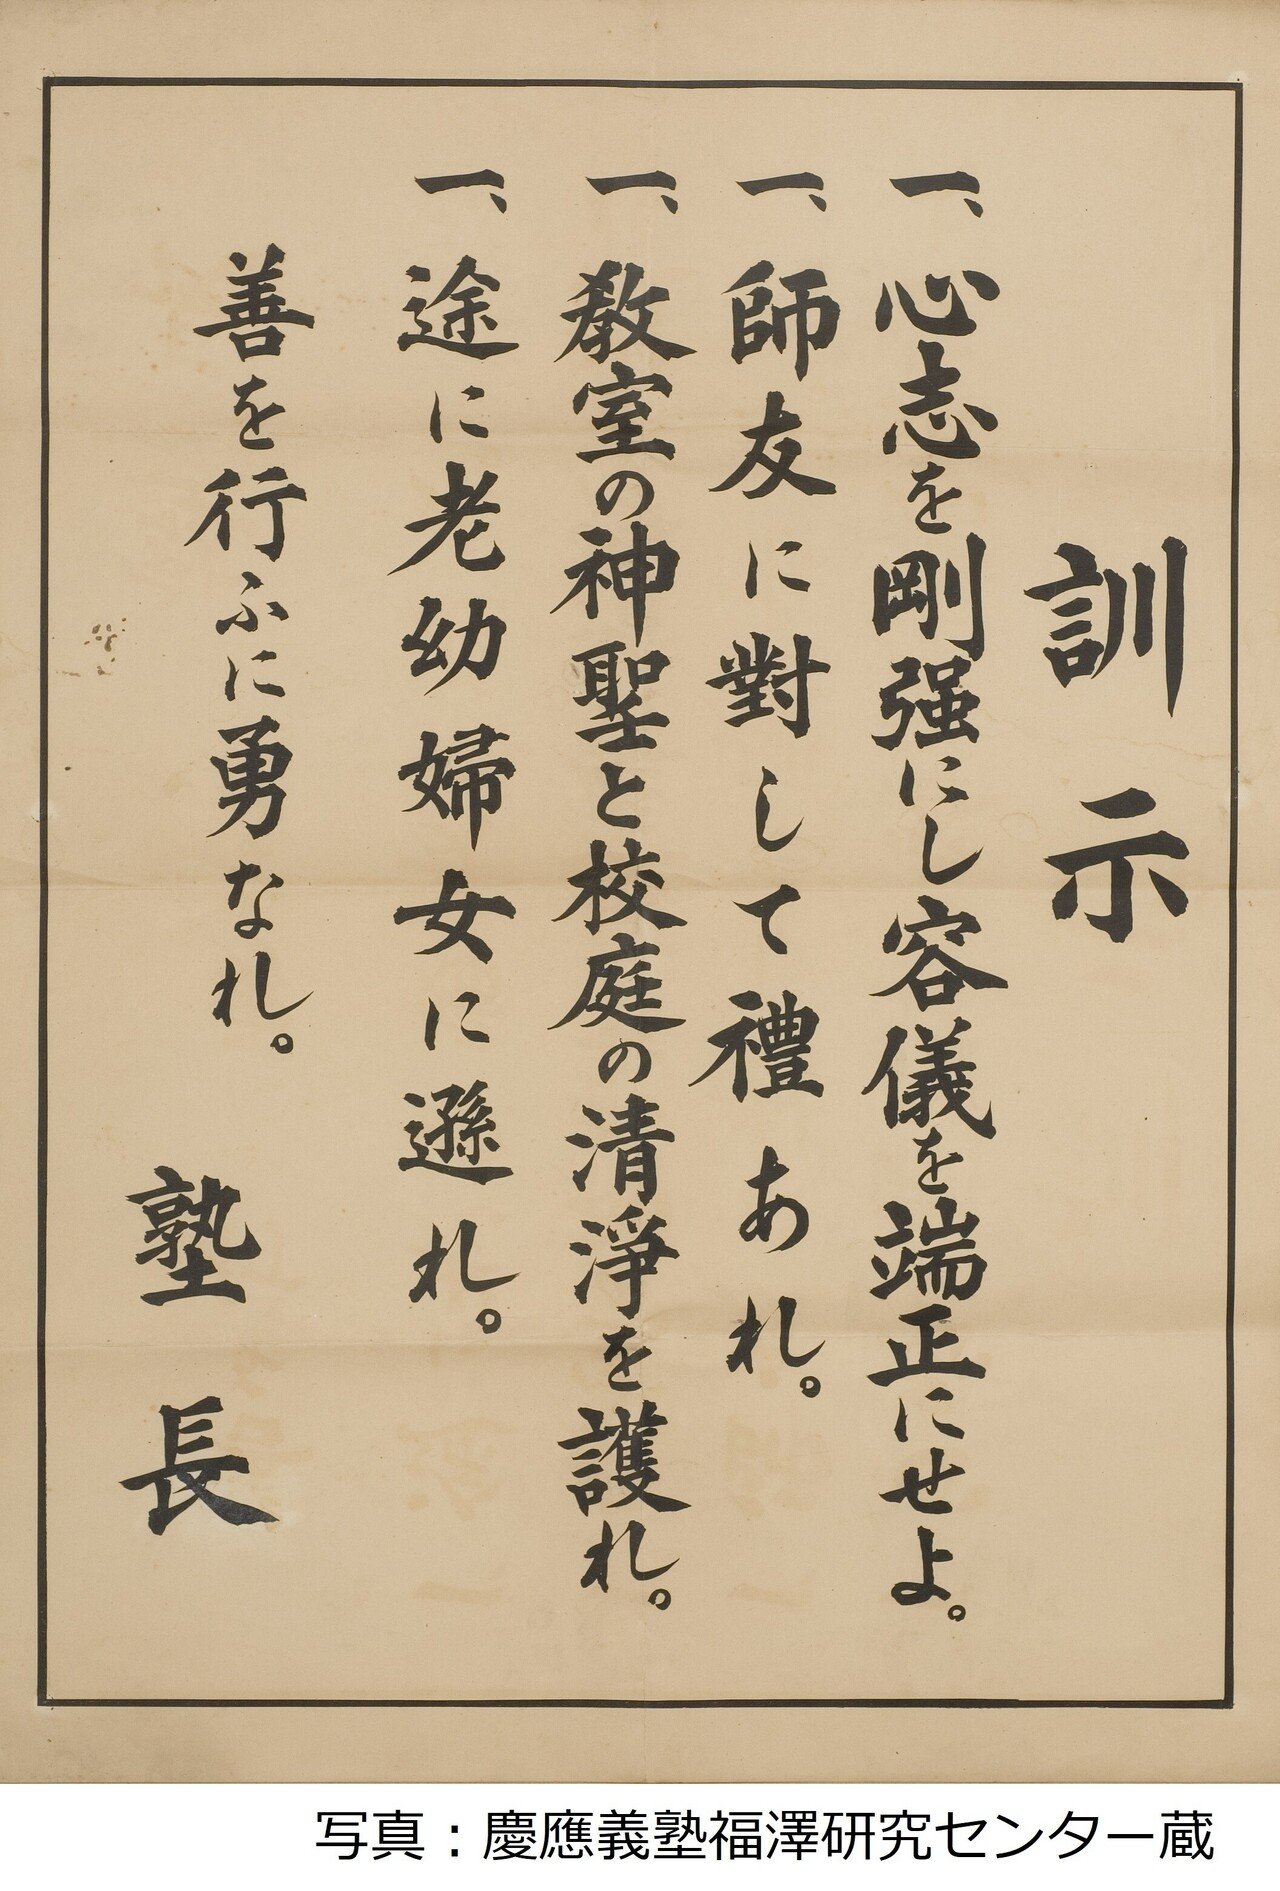 訓示
一、心志を剛强にし容儀を端正にせよ。
一、師友に對して禮あれ。
一、教室の神聖と校庭の清淨を護れ。
一、途に老幼婦女に遜れ。
善を行ふに勇なれ。
塾長
写真：慶應義塾福澤研究センター蔵